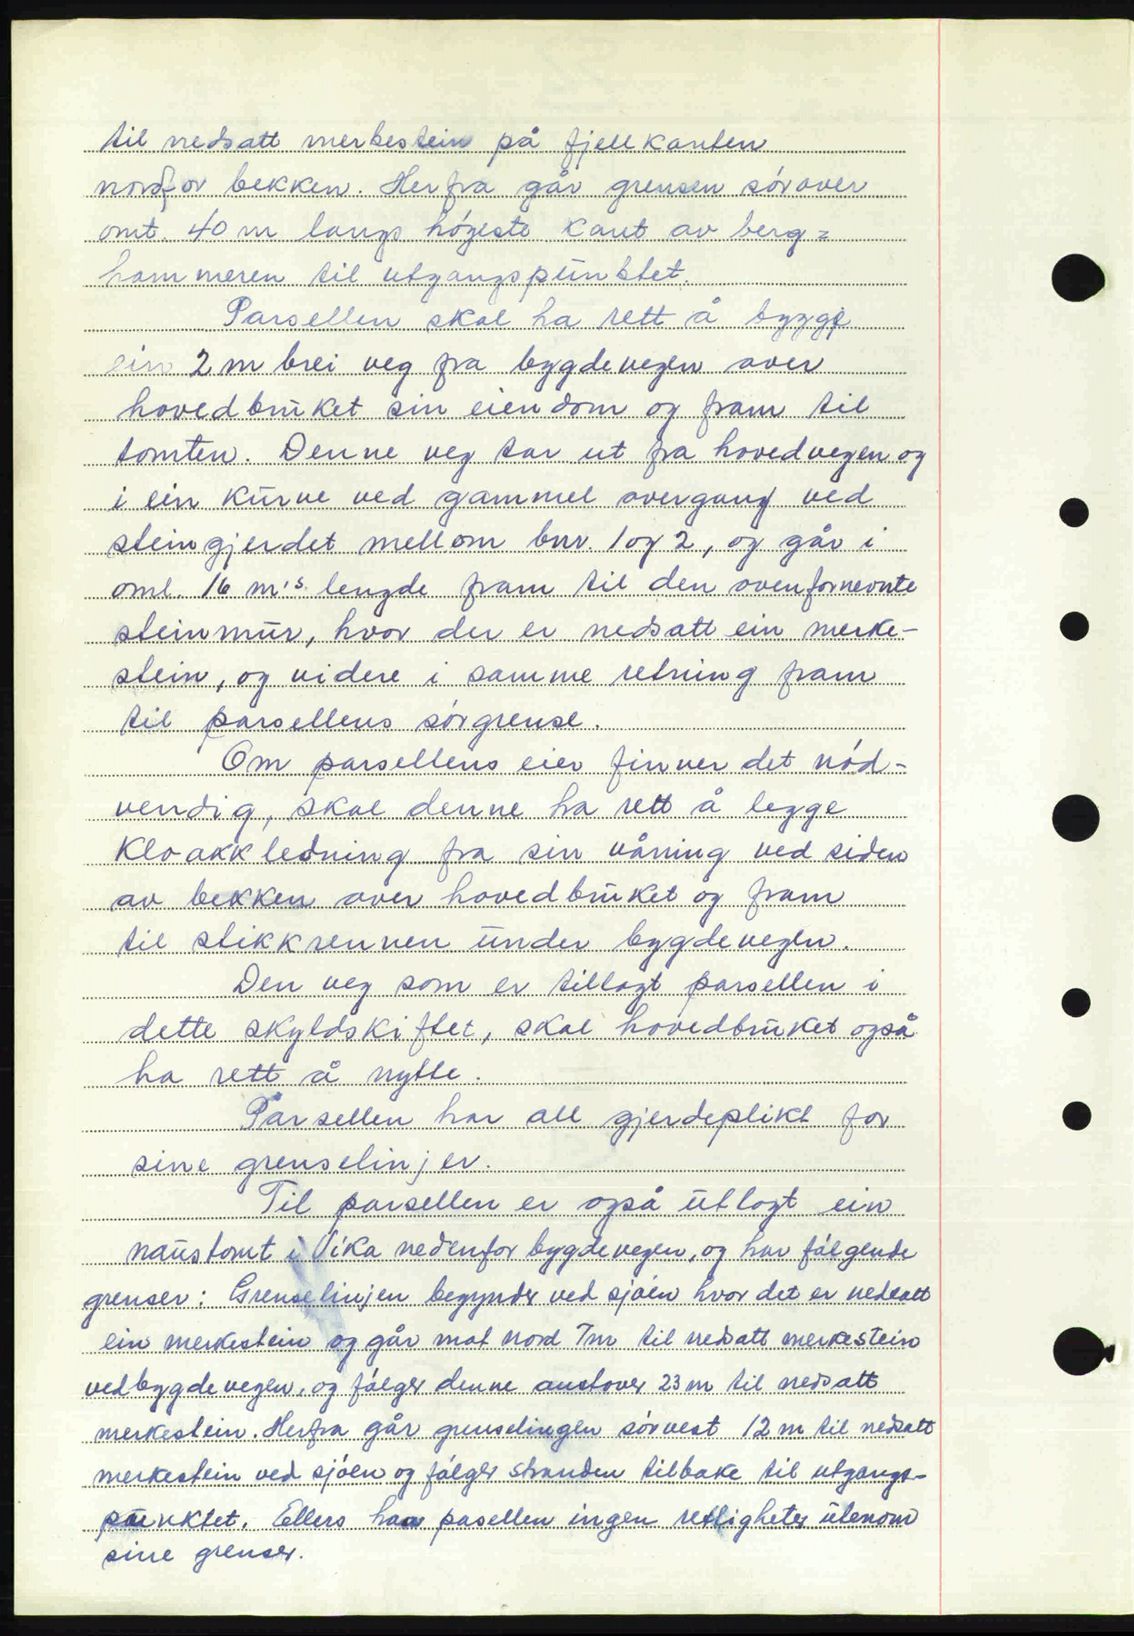 til nedsatt merkestein på fjellkanten
nordfor bekken. Herfra går grensen sørover
omt. 40 m langs høgeste kant av berg=
hammeren til utgangspunktet.
Parsellen skal ha rett å bygge
ein 2 m brei veg fra bygdevegen over
hovedbruket sin eiendom og fram til
tomten. Denne veg tar ut fra hovedvegen og
i ein kurve ved gammel overgang ved
steingjerdet mellom bnr. 1 og 2, og går i
omt. 16 m's lengde fram til den ovenfornevnte
steinmur, hvor der er nedsatt ein merke-
stein, og videre i samme retning fram
til parsellens sørgrense.
Om parsellens eier finner det nød-
vendig, skal denne ha rett å legge
kloakkledning fra sin våning ved siden
av bekken over hovedbruket og fram
til stikkrennen under bygdevegen.
Den veg som er tillagt parsellen i
dette skyldskiftet, skal hovedbruket også
ha rett å nytte.
Parsellen har all gjerdeplikt for
sine grenselinjer.
Til parsellen er også utlagt ein
naustomt i Vika nedenfor bygdevegen, og har følgende
grenser: Grenselinjen begynder ved sjøen hvor det er nedsatt
ein merkestein og går mot nord 7m til nedsatt merkestein
ved bygdevegen, og følger denne austover 23 m til nedsatt
merkestein. Herfra går grenselingen sørvest 12 m til nedsatt
merkestein ved sjøen og følger stranden tilbake til utgangs-
punktet. Ellers har pasellen ingen rettigheter utenom
sine grenser.